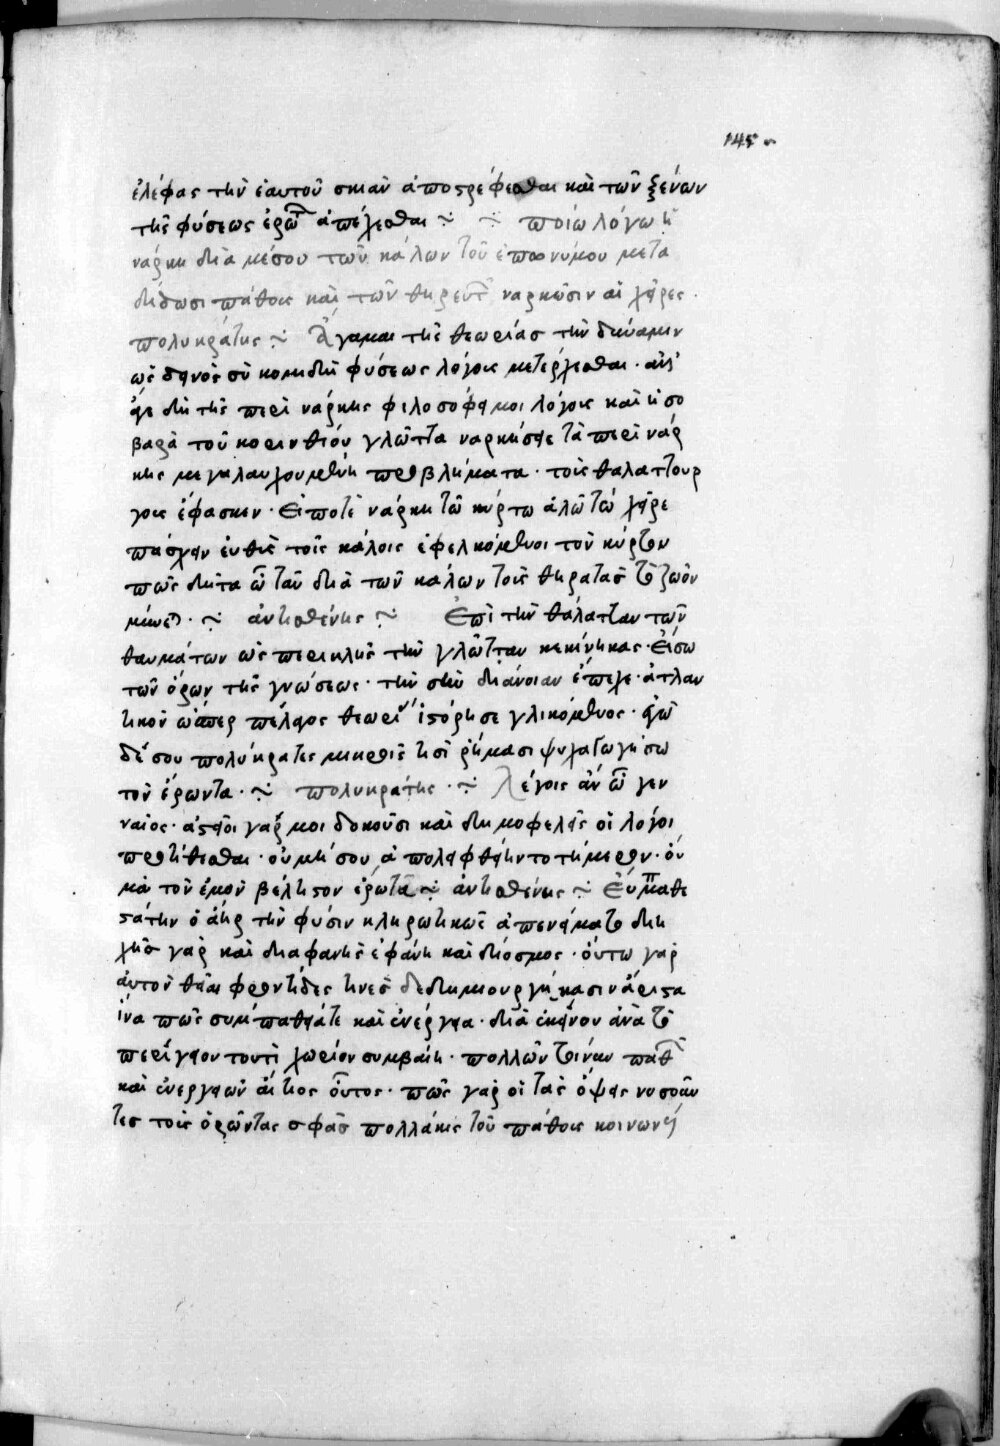 145
ἐλέφας τὴν ἑαυτοῦ σκιὰν ἀποστρέφεσθαι καὶ τῶν ξένων
τῆς φύσεως ἐρωτ ἀπέχεσθαι ποίω λόγω ἡ
νάρκη διὰ μέσου τῶν κάλων τοῦ ἐπωνύμου μετα
δίδωσι πάθους καὶ τῶν θηρευτ ναρκῶσιν αἱ χεῖρες.
πολυκράτης Ἄγαμαι τῆς θεωρίας τὴν δύναμιν
ὡς δεινὸς σὺ κομιδῆ φύσεως λόγους μετέρχεσθαι.
ἄγε δὴ τῆς περὶ νάρκης φιλοσόφει μοι λόγους καὶ ἡ σο
βαρὰ τοῦ κορινθίου γλῶττα ναρκήσει τὰ περὶ νάρ
κης μεγαλαυχουμένη προβλήματα. τοῖς θαλαττουρ
γοῖς ἔφασκεν. Εἴποτε νάρκη τῶ κύρτω ἁλῶ τὼ χεῖρε
πάσχειν εὐθὺς τοῖς κάλοις ἐφελκόμενοι τὸν κύρτον
πῶς δῆτα ὦ τὰν διὰ τῶν κάλων τοὺς θηρατὰς τὸ ζῶον
ἀντισθένης Ἐπὶ τὴν θάλατταν τῶν
θαυμάτων ὡς περικλῆς τὴν γλῶτταν κεκίνηκας. Εἴσω
τῶν ὅρων τῆς γνώσεως. τὴν σὴν διάνοιαν ἔπεχε. ἀτλαν
τικὸν ὥσπερ πέλαγος θεωρί ἱστόρησε γλιχόμενος. ἐγὼ
δέ σου πολύκρατες μικροῖς τισὶ ῥήμασι ψυχαγωγήσω
τὸν ἔρωτα. πολυκράτης. λέγοις ἂν ὦ γεν
ναῖος. ἀστεῖοι γάρ μοι δοκοῦσι καὶ δημοφελεῖς οἱ λόγοι
προτίθεσθαι. οὐ μή σου ἀπολειφθείην τὸ τήμερον. οὐ
μὰ τὸν ἐμὸν βέλτιστον ἔρωτα ἀντισθένης Εὐπαθε
στάτην ὁ ἀὴρ τὴν φύσιν κληρωτικῶς ἀπενείματο διη
χής γὰρ καὶ διαφανὴς ἐφάνη καὶ δίοσμος. οὕτω γὰρ
αὐτὸν θεῖαι φροντίδες τινὲς δεδημιουργήκασιν ἄριστα
ἵνα πως συμπάθειά τε καὶ ἐνέργεια. διὰ ἐκείνου ἀνὰ τὸ
περίγειον τουτὶ χωρίον συμβαίη. πολλῶν παθ
καὶ ἐνεργειῶν αἴτιος οὗτος. πῶς γὰρ οἱ τὰς ὄψεις νοσοῦν
τες τοὺς ὁρῶντας σφᾶς πολλάκις τοῦ πάθους κοινωνεῖ